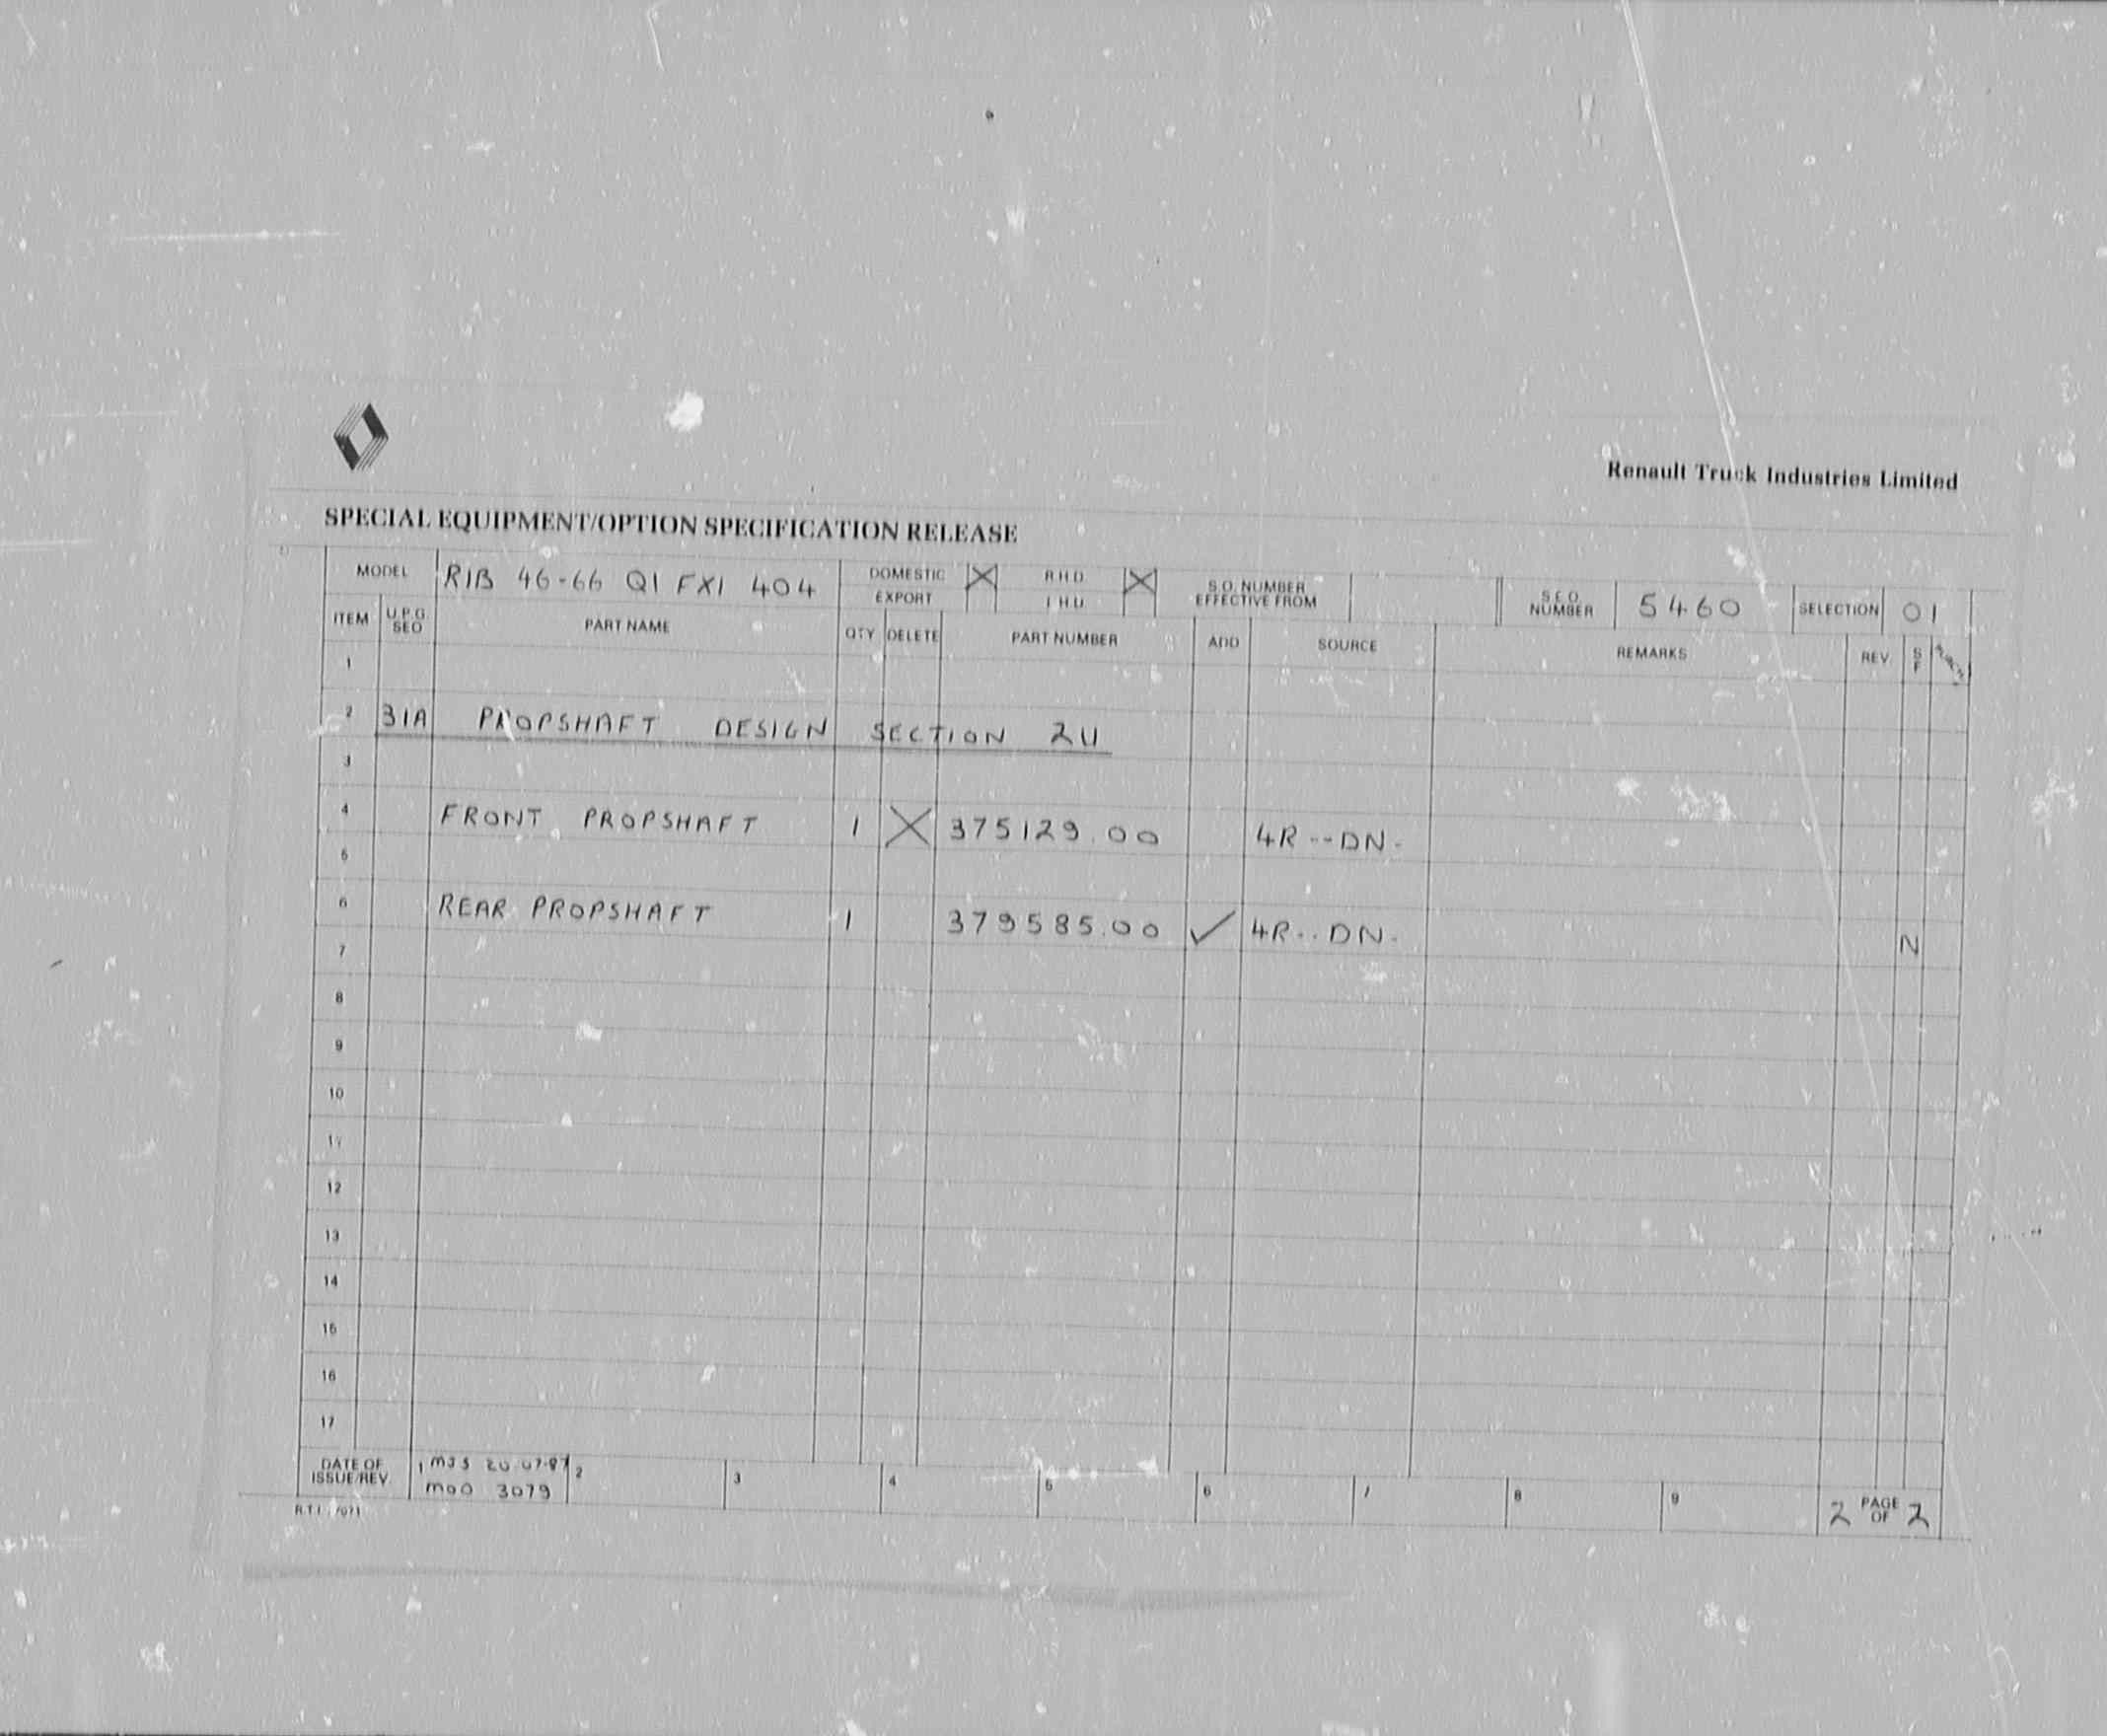 Renault Truck Industries Limited
SPECIAL EQUIPMENT/OPTION SPECIFICATION RELEASE
MODEL RIB 46-66 Q1 FX1 404 DOMESTIC X R.H.D. X S.O. NUMBER EFFECTIVE FROM S.E.O. NUMBER 5460 SELECTION 01
EXPORT L.H.D.
ITEM U.P.G. SEO PART NAME QTY DELETE PART NUMBER ADD SOURCE REMARKS REV. S F
1
2 31A PROPSHAFT DESIGN SECTION 2U
3
4 FRONT PROPSHAFT 1 X 375129.00 4R --DN-
5
6 REAR PROPSHAFT 1 379585.00 ✓ 4R..DN. N
7
8
9
10
11
12
13
14
15
16
17
DATE OF ISSUE/REV. 1 MJS 20.07.87 2 3 4 5 6 7 8 9 2 PAGE OF 2
MOD 3079
R.T.I. 7071